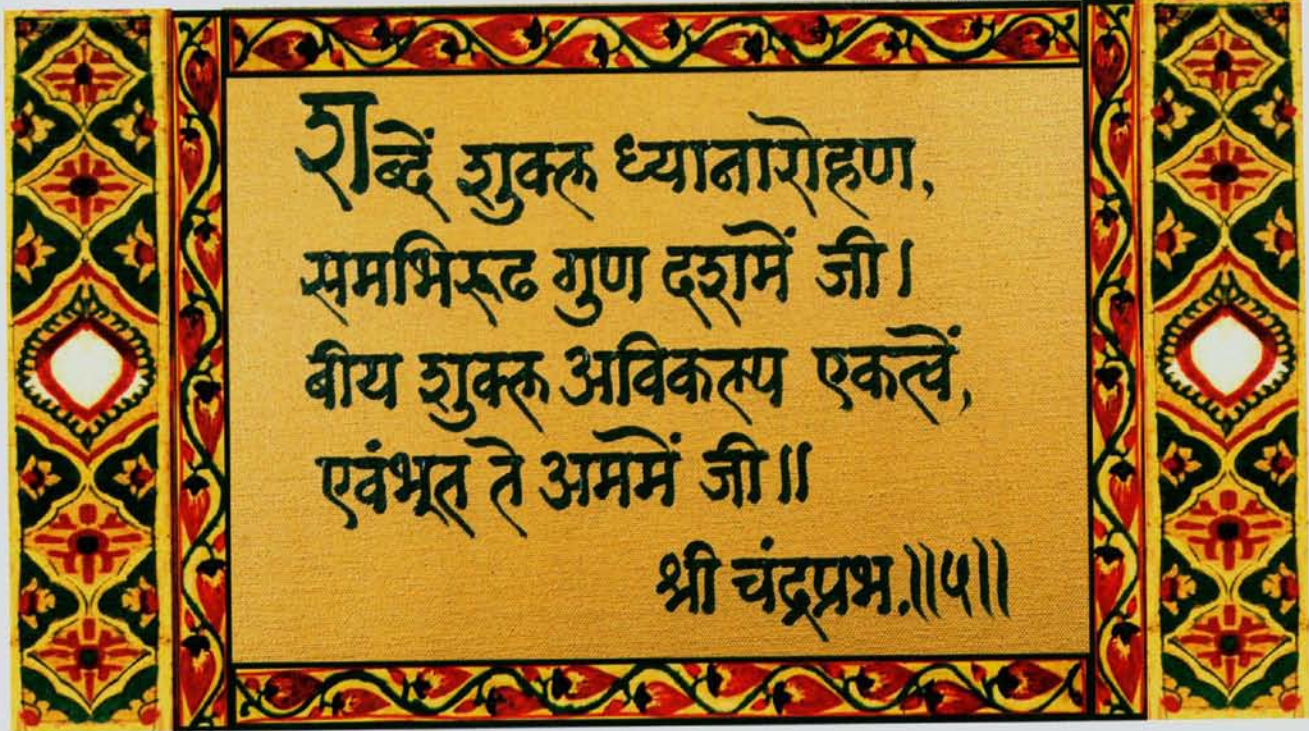 शब्दें शुक्ल ध्यानारोहण,
समभिरूढ गुण दशमें जी।
बीय शुक्ल अविकल्प एकत्वें,
एवंभूत ते अममें जी॥
श्री चंद्रप्रभ.॥५॥